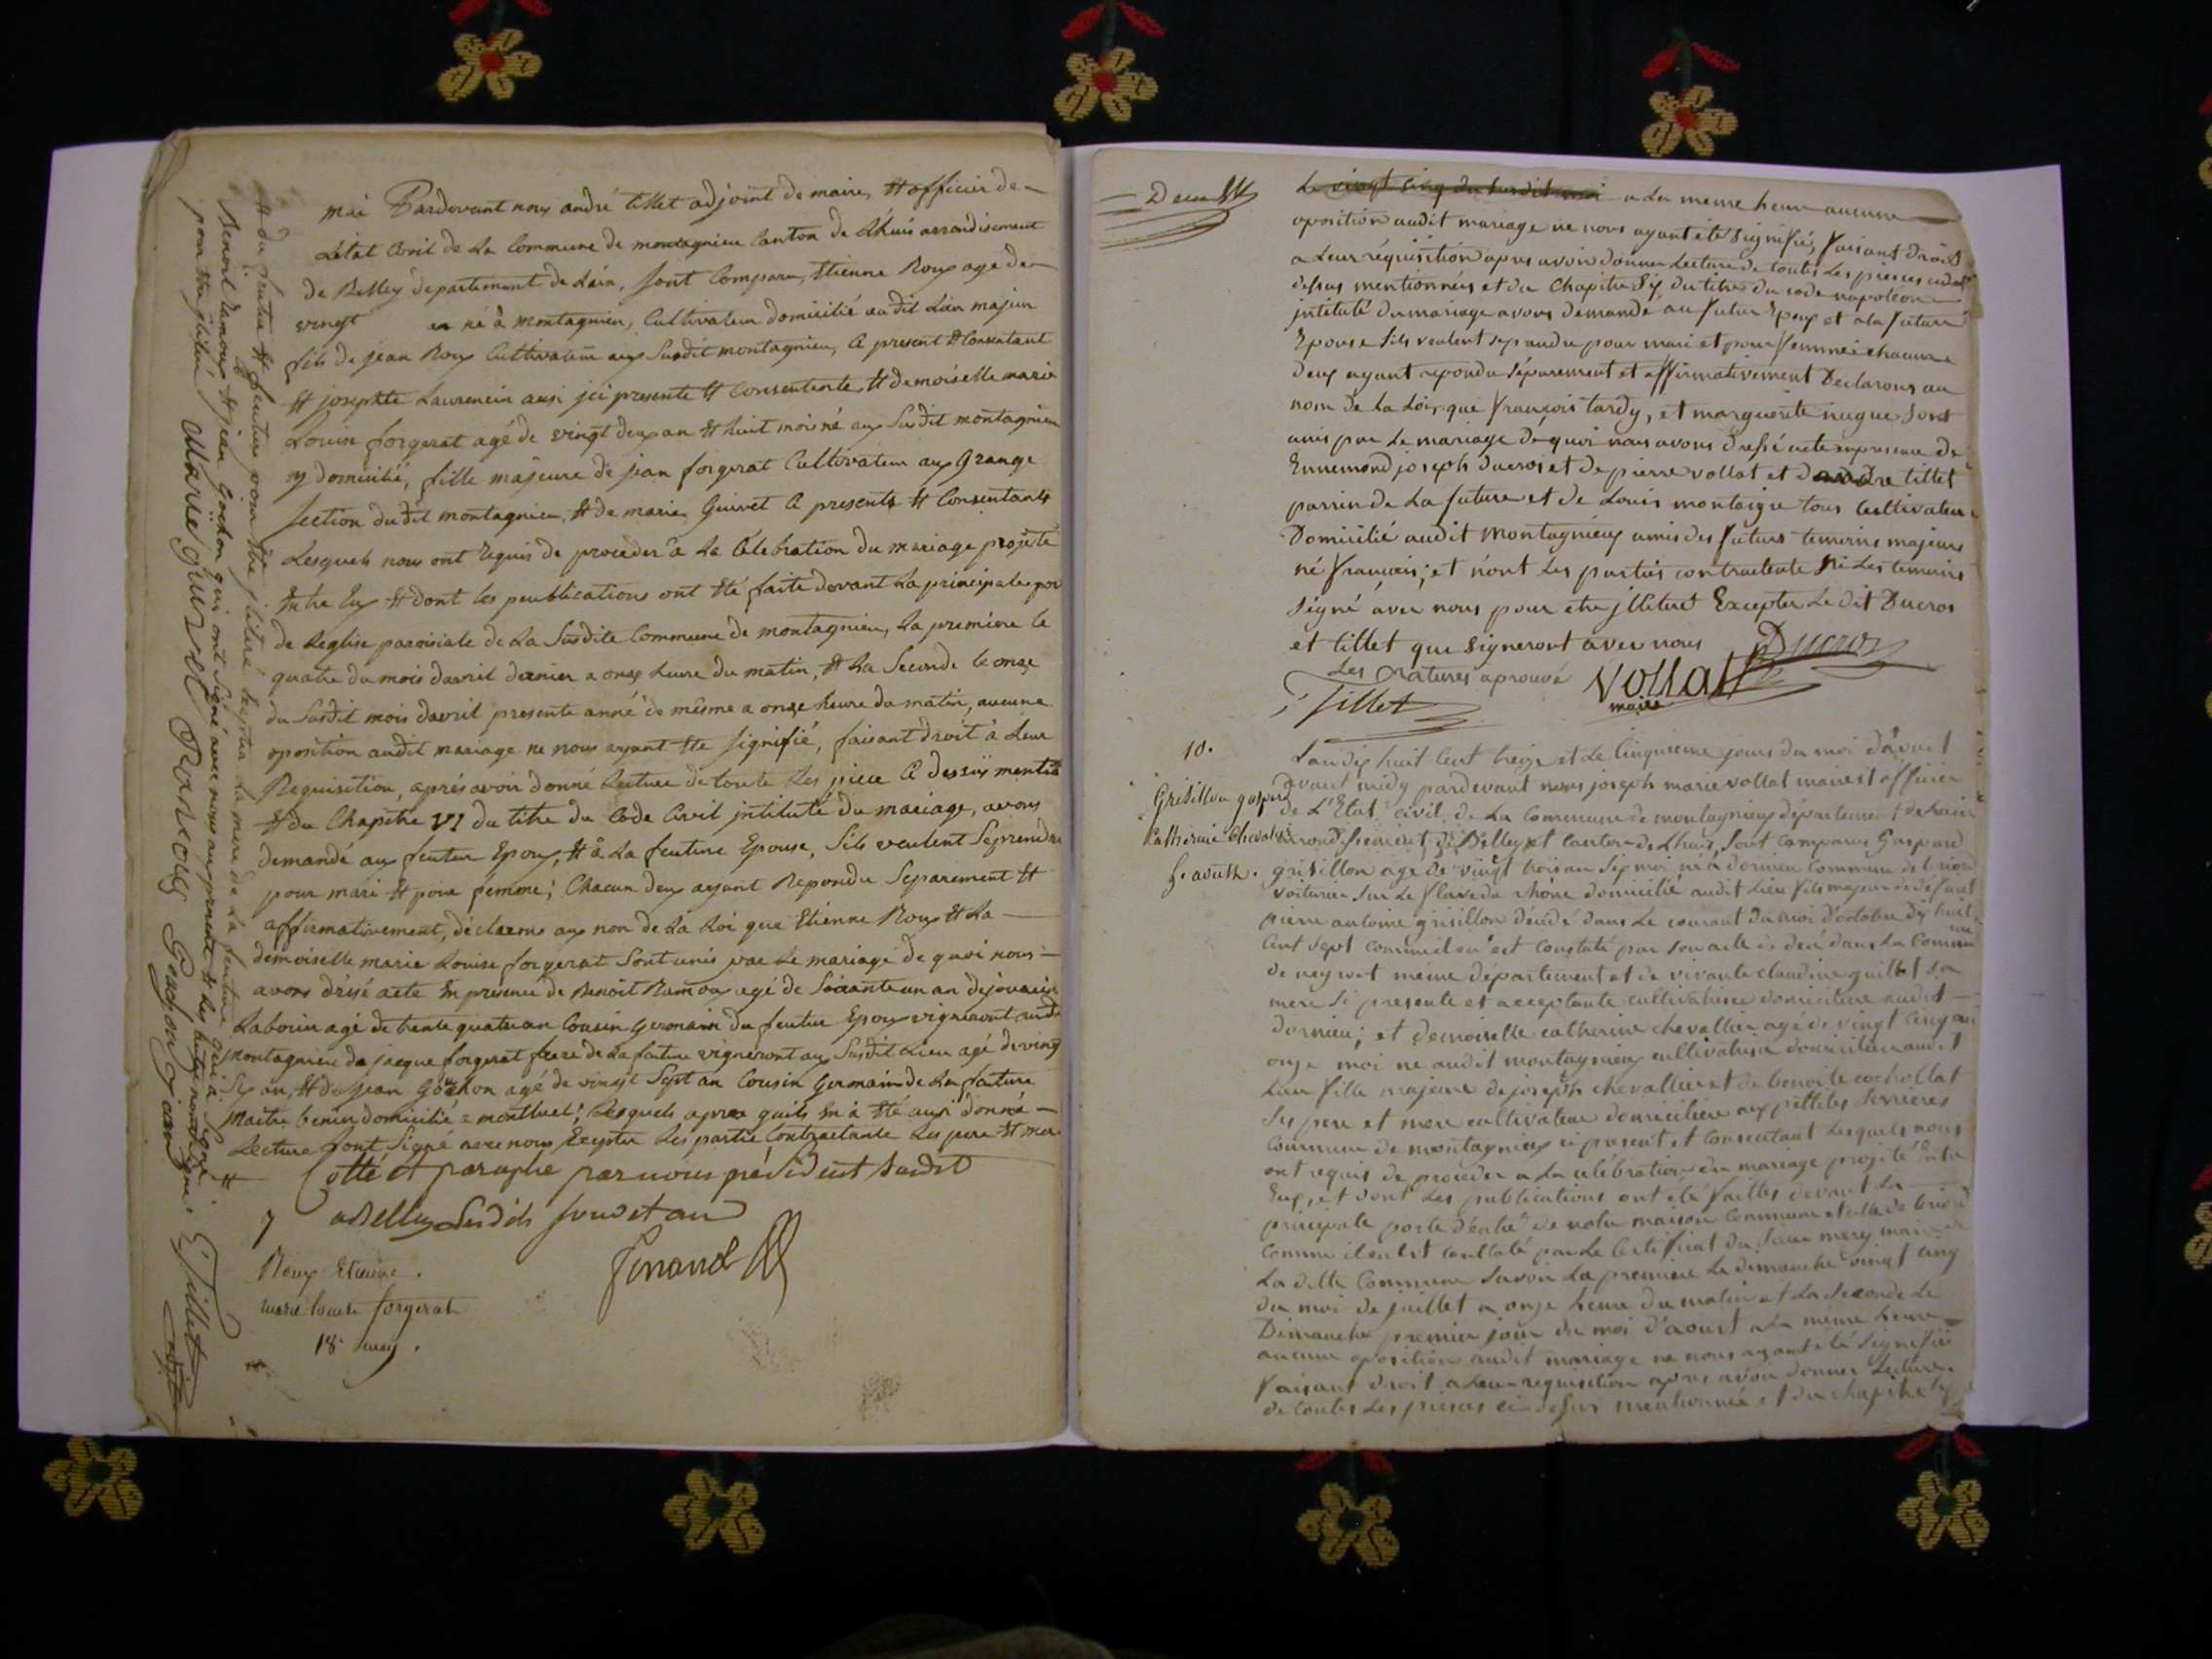 mai Pardevant nous andré tillet adjoint de maire, et officier de
Létat Civil de La Commune de montagnieu Canton de Lhuis arrondisement
de Belley departement de Lain, sont Comparu, Etienne Roux agé de
vingt an né à montagnieu, Cultivateur domicilié audit Lieu majeur
fils de jean Roux Cultivateur aux Susdit montagnieu, Ci present et Consentant
et josephte Laurencin ausi ici presente et Consentente, et demoiselle marie
Louise forgerat agé de vingt deux an et huit mois né aux Susdit montagnieu
y domicilié, fille majeure de jean forgerat Cultivateur aux Grange
section dudit montagnieu, et de marie Guivet Ci presents et Consentants
Lesquels nous ont Requis de proceder à La Célébration du mariage projeté
Entre Eux et dont les peublications ont été faite devant La principale por
de Leglise paroisiale de La Susdite Commune de montagnieu, La premiere le
quatre du mois davril dernier a onze heure du matin, et La Seconde le onze
du Susdit mois davril presente anné de même a onze heure du matin, aucune
oposition audit mariage ne nous ayant été signifié, faisant droit à Leur
Requisition, aprés avoir donné Lecture de toute Les piece Ci dessus mentio
et du Chapitre VI du titre du Code Civil intitulé du mariage, avons
demandé aux feutur Epoux, et à La feuture Epouse, Sils veulent Seprendre
pour mari et pour femme; Chacun deux ayant Repondu Separement et
affirmativement, déclarons aux non de La Loi que Etienne Roux et La
demoiselle marie Louise forgerat Sont unis par Le mariage de quoi nous
avons drésé acte En presence de Benoit Ramoux agé de Soixante un an
Laborieur agé de trente quatre an Cousin Germain du feutur Epoux vigneront audit
montagnieu de jacque forgerat frere de La feuture vigneront aux Susdit Lieu agé de vingt
Six an, et de jean Gochon agé de vingt Sept an Cousin Germain de La feuture
domicilié a montluel; Lesquels apres quils En à été ausi donné
Lecture Sont Signé avec nous Excepter Les partie Contractante Les pere et mere
Cotté et paraphé par nous président Susdit
a Belley Lesdits jour et an
7
Roux Etienne.
marie louise forgerat
18 may.
et du feutur et feuture pour être iliteré Exepter La mere de La feuture qui a Signé
Benoit Ramoux et jean Gochon qui ont Signé avec nous
pour être iliteré Marie guivet Ramoux Gochon jean Tillet
Le vingt cinq du susdit moi a La meme heure aucune
oposition audit mariage ne nous ayant été signifié, faisant droit
a Leur réquisition apres avoir donner Lecture de toutes Les pieces ci
dessus mentionnées et du Chapitre Six du titre du code napoléon
intitulé du mariage avons demandé au futur Epoux et a la future
Epouse Sils veulent se prendre pour mari et pour femme chacun
deux ayant repondu séparement et affirmativement Declarons au
nom de La Loi que françois tardy, et marguerite nugue sont
unis par Le mariage de quoi nous avons dressé acte en presence de
Ennemond joseph ducros et de pierre vollat et dandre tillet
parrin de La future et de Louis montaigue tous cultivateur
Domicilié audit Montagnieux amis des futurs temoins majeurs
né françois; et n'ont Les parties contractente ni Les temoins
signé avec nous pour etre illiteret Excepter Le dit Ducros
et tillet que signeront avec nous Ducros
Les Ratures aprouvé Vollat
Tillet maire
10.
Grisillon gaspard
Catherine Chevalier
5. aoust.
Lan dix huit cent treize et Le cinquieme jours du moi d'avout
avant midy pardevant nous joseph marie vollat maire et officier
de L'Etat civil de La Commune de montagnieux département de Lain
arrondissement de Belley et canton de Lhuis, sont comparus Gaspard
grisillon age de vingt trois an six moi né à dornieu commune de briord
voiturier sur Le fleuve du rhone domicilié audit Lieu fils majeur de défunt
pierre antoine grisillon décédé dans Le courant du moi d'octobre dix huit
Cent sept comme il en est constaté par son acte de decé dans La Commune
de neyret même département et de vivante claudine guillet sa
mere si presente et acceptante cultivatrice domiciliere audit
dornieu; et demoiselle catherine chevallier agé de vingt cinq an
onze moi ne audit montagnieux cultivatrice domiciliere audit
Lieu fille majeure de joseph chevallier et de benoite cochollat
ses pere et mere cultivateur domiciliere aux pittites Serrieres
Commune de montagnieux ci present et consentant Lesquels nous
ont requis de proceder a La célébration du mariage projeté entre
Eux, et dont Les publications ont été faittes devant La
principale porte d'entré de notre maison Commune et celle de briord
comme il en est constaté par Le Certificat du sieur mery maire de
La ditte Commune savoir La premiere Le dimanche vingt cinq
du moi de juillet a onze heure du matin et La seconde Le
Dimanche premier jour du moi d'aoust a La même heure
aucune oposition audit mariage ne nous ayant été signifié
faisant droit a Leur requisition apres avoir donner Lecture
de toutes Les pieces ci dessus mentionné et du chapitre six